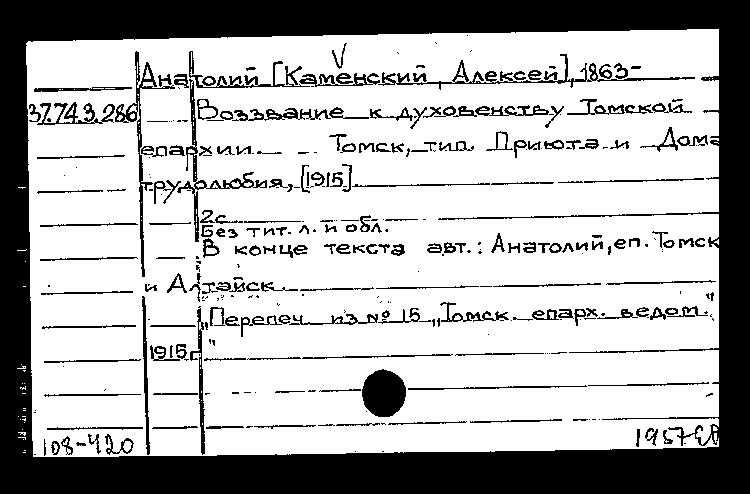 V
Анатолий [Каменский, Алексей], 1863-
37.74.3.286 Воззвание к духовенству Томской
епархии. Томск, тип. Приюта и Дома
трудолюбия, [1915].
2с.
Без тит. л. и обл.
В конце текста авт.: Анатолий, еп. Томск
и Алтайск.
„Перепеч. из № 15 „Томск. епарх. ведом."
1915г."
108-420 1957